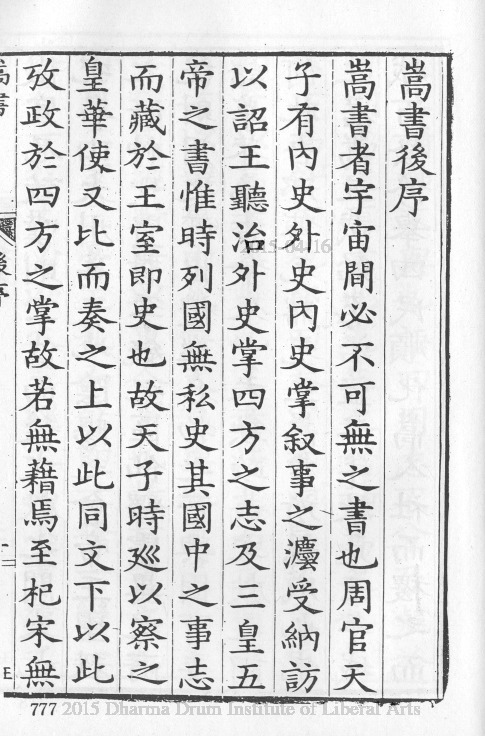 嵩書後序
嵩書者宇宙間必不可無之書也周官天
子有內史外史內史掌叙事之灋受納訪
以詔王聽治外史掌四方之志及三皇五
帝之書惟時列國無私史其國中之事志
而藏於王室即史也故天子時廵以察之
皇華使又比而奏之上以此同文下以此
攷政於四方之掌故若無藉焉至杞宋無
嵩書
後序
2015-04-16
777 2015 Dharma Drum Institute of Liberal Arts